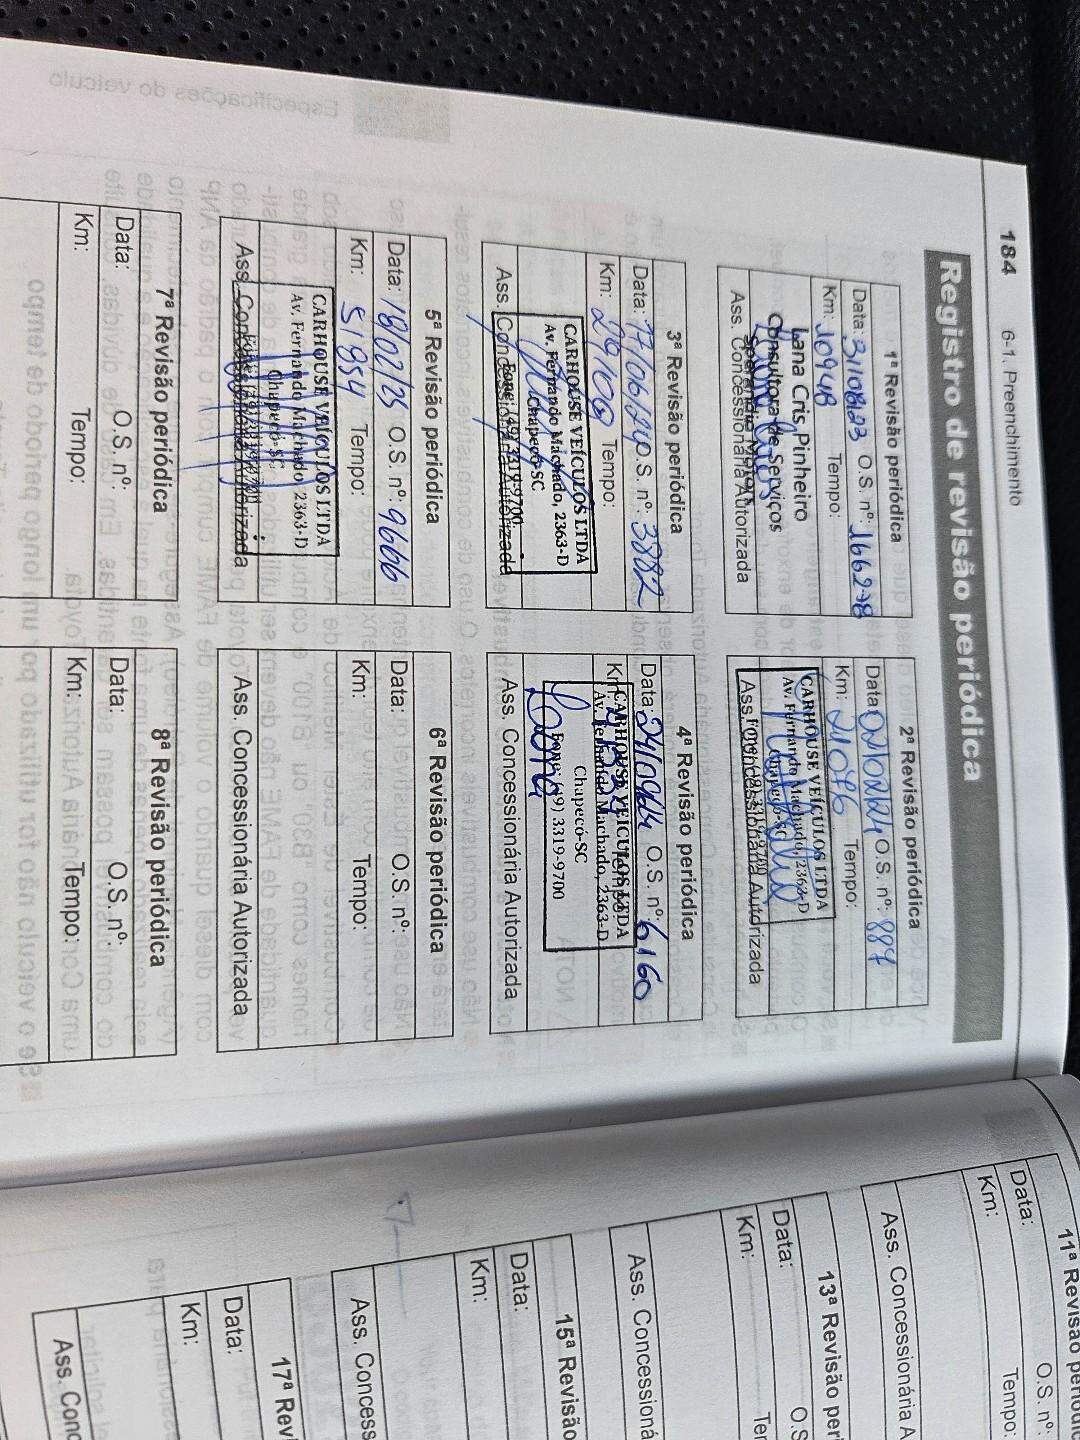 184 6-1. Preenchimento
Registro de revisão periódica
1ª Revisão periódica
Data: 31/08/23 O.S. nº: 166298
Km: 10948 Tempo:
Lana Cris Pinheiro
Consultora de Serviços
Ass. Concessionária Autorizada
2ª Revisão periódica
Data: O.S. nº: 887
Km: 21086 Tempo:
CARHOUSE VEÍCULOS LTDA
Av. Fernando Machado, 2363-D
Chapecó-SC
Ass. Concessionária Autorizada
3ª Revisão periódica
Data: 17/06/24 O.S. nº: 3882
Km: Tempo:
CARHOUSE VEÍCULOS LTDA
Av. Fernando Machado, 2363-D
Chapecó-SC
Fone: (49) 3319-9700
Ass. Concessionária Autorizada
4ª Revisão periódica
Data: O.S. nº: 6160
Km: Tempo:
CARHOUSE VEÍCULOS LTDA
Av. Fernando Machado, 2363-D
Chapecó-SC
Fone: (49) 3319-9700
Ass. Concessionária Autorizada
5ª Revisão periódica
Data: 18/02/25 O.S. nº: 9666
Km: 51854 Tempo:
CARHOUSE VEÍCULOS LTDA
Av. Fernando Machado 2363-D
Chapecó-SC
Ass. Concessionária Autorizada
6ª Revisão periódica
Data: O.S. nº:
Km: Tempo:
Ass. Concessionária Autorizada
7ª Revisão periódica
Data: O.S. nº:
Km: Tempo:
8ª Revisão periódica
Data: O.S. nº:
Km: Tempo:
11ª Revisão
Data: O.S. nº:
Km: Tempo:
Ass. Concessionária A
13ª Revisão per
Data: O.S
Km: Te
Ass. Concessioná
15ª Revisão
Data:
Km:
Ass. Concess
17ª Rev
Data:
Km:
Ass. Conc